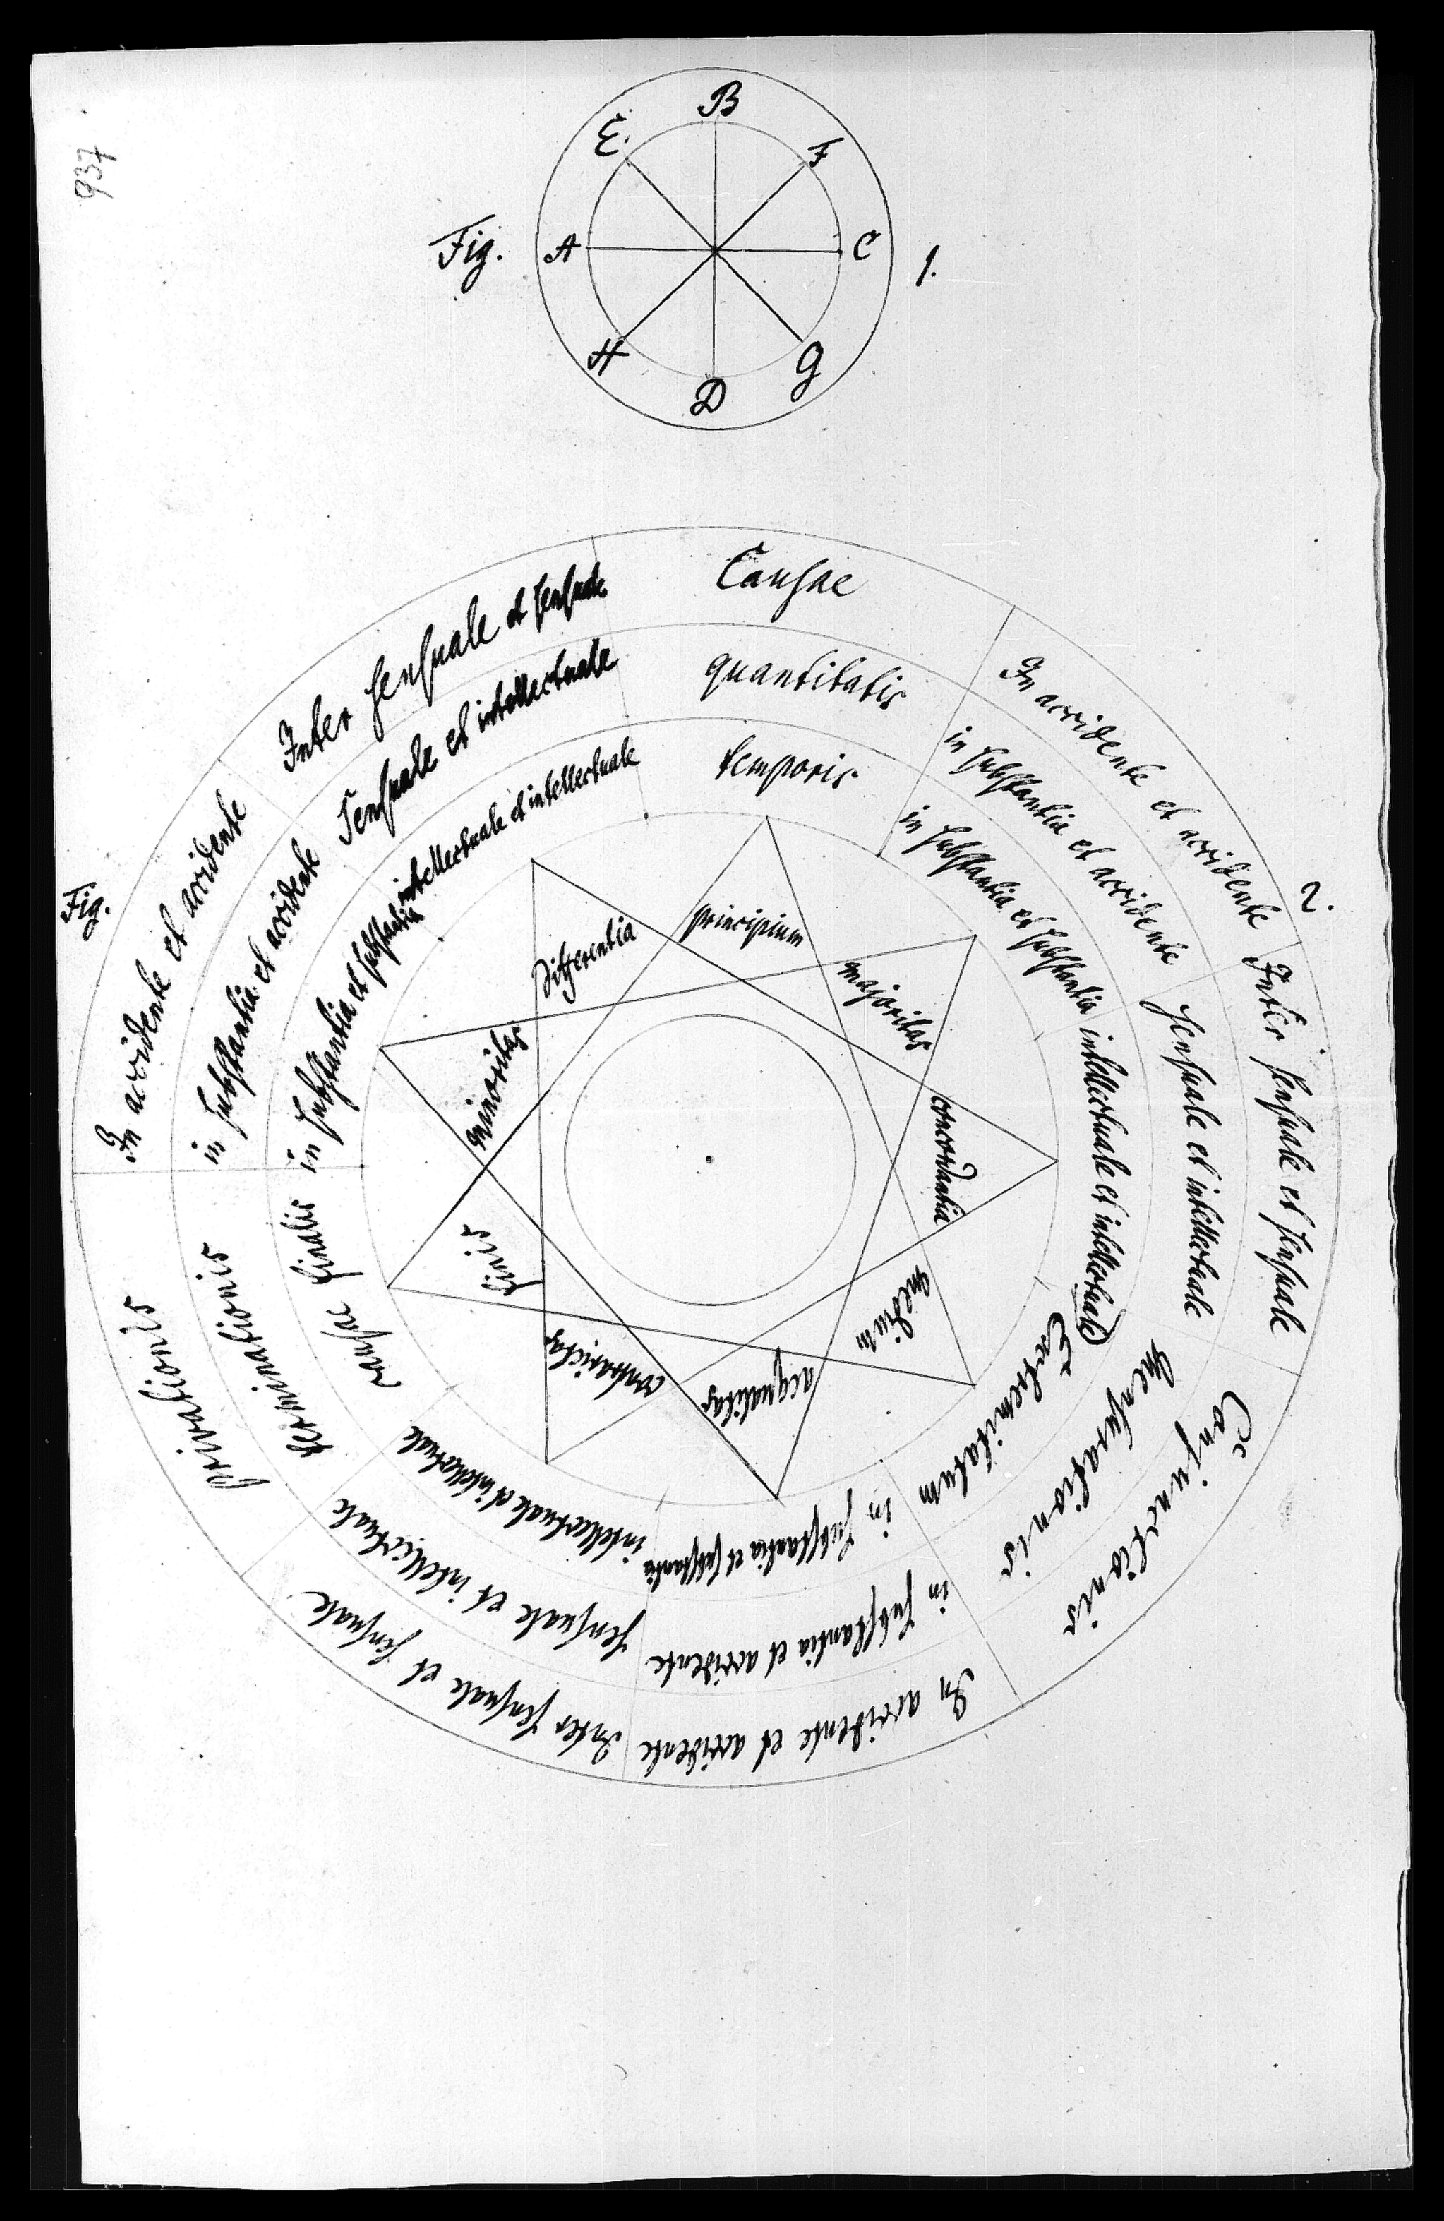 937
Fig. 1.
B
F
C
G
D
H
A
E
Fig. 2.
Causae
quantitatis
temporis
In accidente et accidente
in substantia et accidente
in substantia et substantia
Inter sensuale et sensuale
sensuale et intellectuale
intellectuale et intellectuale
Conjunctionis
Mensurationis
Extremitatum
In accidente et accidente
in substantia et accidente
in substantia et substantia
Inter sensuale et sensuale
sensuale et intellectuale
intellectuale et intellectuale
privationis
terminationis
causae finalis
In accidente et accidente
in substantia et accidente
in substantia et substantia
Inter sensuale et sensuale
Sensuale et intellectuale
intellectuale et intellectuale
Differentia
principium
majoritas
concordantia
medium
aequalitas
contrarietas
finis
minoritas